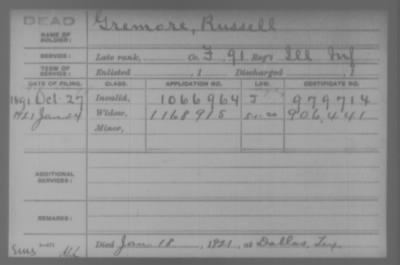 DEAD
NAME OF SOLDIER: Gremore, Russell
SERVICE: Late rank, Co. F, 91 Reg't Ill Inf
TERM OF SERVICE: Enlisted , 1 Discharged , 1
DATE OF FILING. CLASS. APPLICATION NO. LAW. CERTIFICATE NO.
1891 Oct 27 Invalid, 1066964 J 979714
1921 Jan 24 Widow, 1168915 906,441
Minor,
ADDITIONAL SERVICES:
REMARKS:
Died Jan 18, 1921, at Dallas, Tex